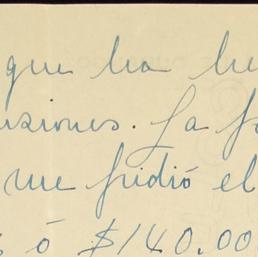 que ha he
usiones. La fa
me pidió el
s ó $140.00